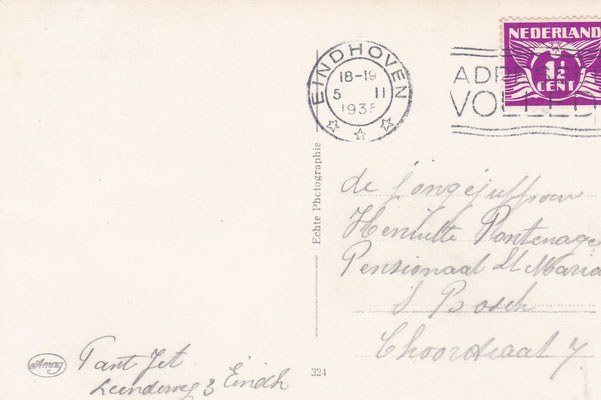 NEDERLAND
1½
CENT
EINDHOVEN
18-19
5 II
1935
VOLLED
Echte Photographie
de jongejuffrouw
Henriette
Pensionaat St Maria
's Bosch
Choorstraat 7
Amag
Tant Jet
Leenderweg 3 Eindh
324